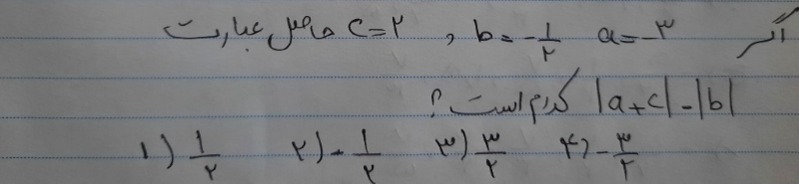 اگر a=-۳ b=-۱/۲ , c=۲ حاصل عبارت
|a+c|-|b| کدام است؟
۱) ۱/۲ ۲) -۱/۲ ۳) ۳/۲ ۴) -۳/۲